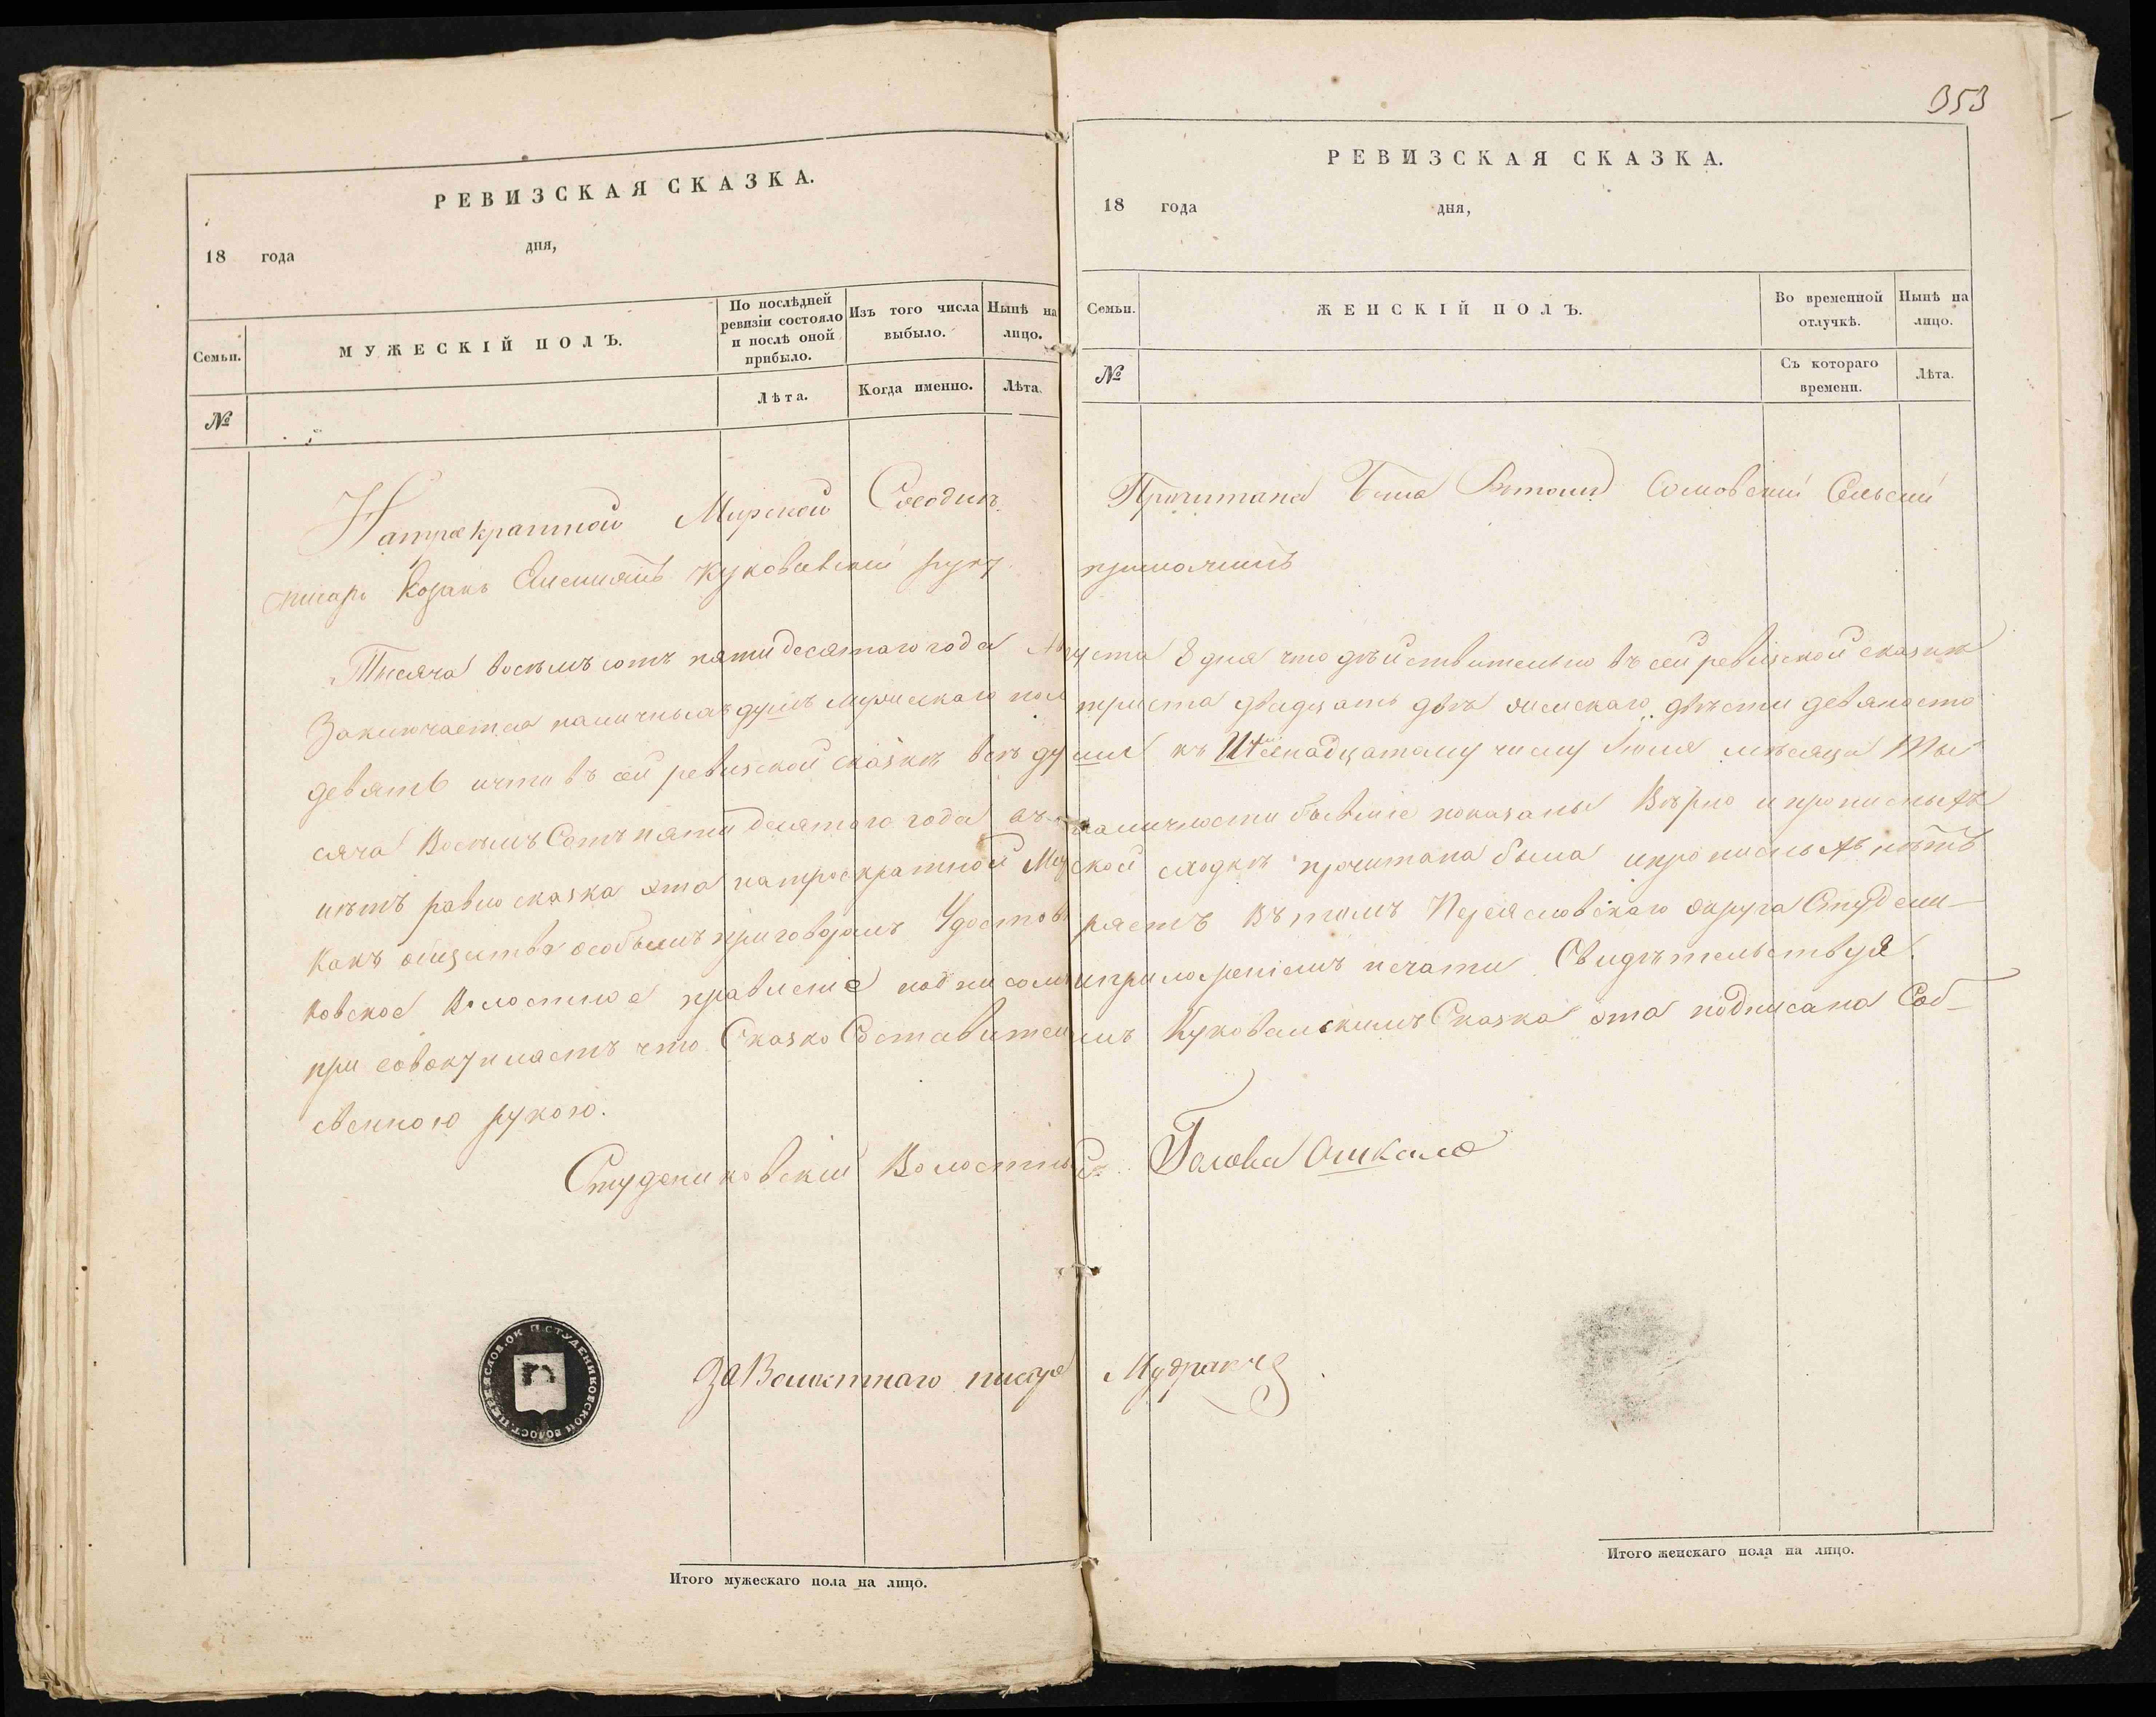 353
РЕВИЗСКАЯ СКАЗКА.
18 года дня,
Семьи.
МУЖЕСКІЙ ПОЛЪ.
По послѣдней ревизіи состояло и послѣ оной прибыло.
Изъ того числа выбыло.
Нынѣ на лицо.
№
Лѣта.
Когда именно.
Лѣта.
РЕВИЗСКАЯ СКАЗКА.
18 года дня,
Семьи.
ЖЕНСКІЙ ПОЛЪ.
Во временной отлучкѣ.
Нынѣ на лицо.
№
Съ котораго времени.
Лѣта.
Натроекратной Мирской Сходкѣ Прочитана Була Сельскій
писарь Козакъ Куковавскій руку приложилъ
Тисяча восѣмъ сотъ пятидесятаго года Августа 8 дня что дѣйствительно въ сей ревизской сказкѣ
Заключается наличныхъ душъ мужескаго пола триста двадцать двѣ женскаго двѣсти девяносто
девять ичто въ сей ревизской сказкѣ всѣ души къ числу Іюля мѣсяца Ты
сяча Восѣмъ Сотъ пяти десятого года въ наличности бывшіе показаны Вѣрно и прописныхъ
нѣтъ равно сказка эта натроекратной Мирской сходкѣ прочитана была ипрописныхъ нѣтъ
Какъ общество особымъ приговоромъ Удостовѣряетъ Въ томъ Переясловскаго округа Студени-
ковское Волостное правленіе подписомъ иприложеніемъ печати Свидѣтельствуя
при совокупляетъ что Сказко Составителемъ Куковавскимъ Сказка эта подписана Соб-
ственною рукою.
Студениковскій Волостной Голова Ошкало
За Волостнаго писаря Мудракъ
ПЕРЕЯСЛОВ. ОК П. СТУДЕНИКОВСКОЙ ВОЛОСТ.
Итого мужескаго пола на лицо.
Итого женскаго пола на лицо.